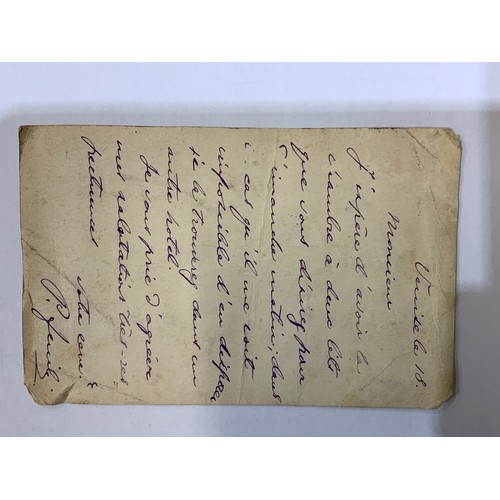 Venise le 18.
Monsieur
J'espère d'avoir la
chambre à deux lits
que vous désirez pour
dimanche matin; dans
cas qu'il me soit
impossible d'en dispos
je la trouverez dans un
autre hôtel.
Je vous prie d'agréer
mes salutations très-res-
pectueuses votre
P.